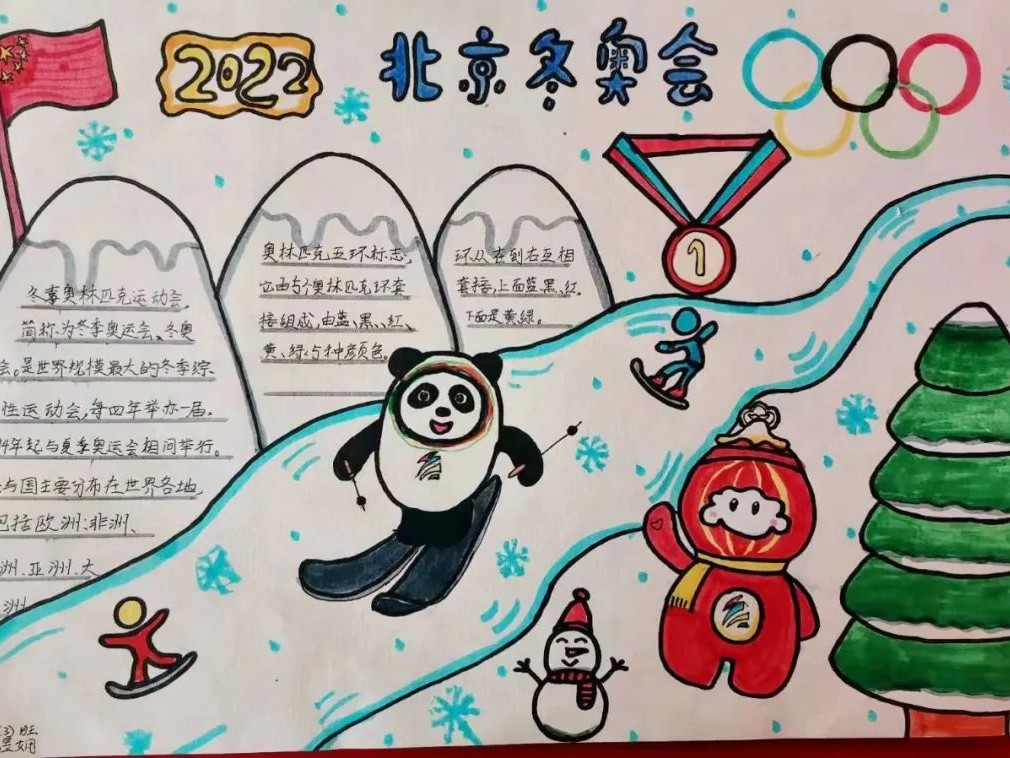 2022
北京冬奥会
1
冬季奥林匹克运动会,
简称:为冬季奥运会、冬奥
会。是世界规模最大的冬季综
性运动会,每四年举办一届。
4年起与夏季奥运会相间举行。
与国主要分布在世界各地,
包括欧洲、非洲、
洲、亚洲、大
洲
奥林匹克五环标志,
它由5个奥林匹克环套
接组成,由蓝、黑、红、
黄、绿5种颜色。
环从左到右互相
套接,上面蓝、黑、红,
下面是黄绿。
班